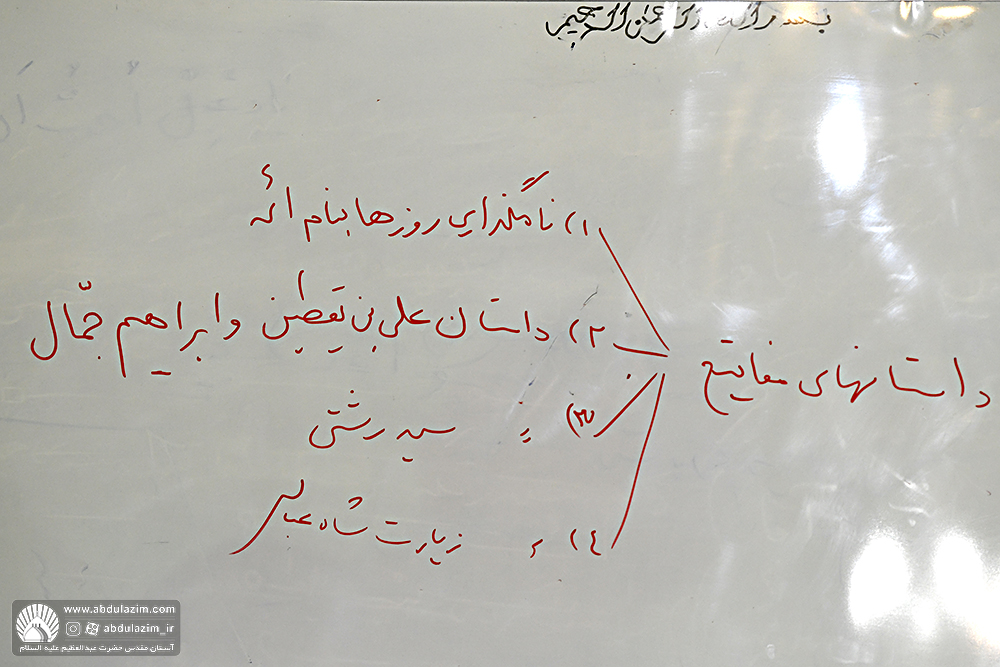 بسم الله الرحمن الرحیم
داستانهای مفاتیح
۱) نامگذاری روزها بنام ائمه
۲) داستان علی بن یقطین و ابراهیم جمّال
۳) = سید رشتی
٤) = زیارت شاه عباس
www.abdulazim.com
abdulazim_ir
آستان مقدس حضرت عبدالعظیم علیه السلام